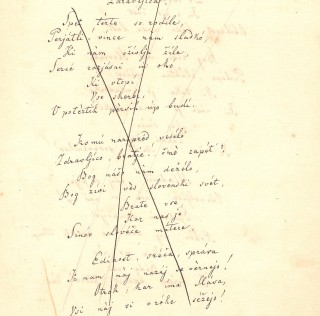 Zdravljica.
Spet terte so rodile,
Perjatli, vince nam sladkó,
Ki nam oživlja žile,
Sercé razjasni in okó
Ki utopi
Vse skerbi,
V potertih persih up budí.
Komú narpred veselo
Zdravljico, bratje! čmò zapét'?
Bog našo nam deželo,
Bog živi ves slovenski svét,
Brate vse,
Kar nas je
Sinov sloveče matere.
Edinost, sreča, sprava
K nam naj nazaj se vernejo!
Otrók, kar ima Slava,
Vsi naj si v róke sežejo!